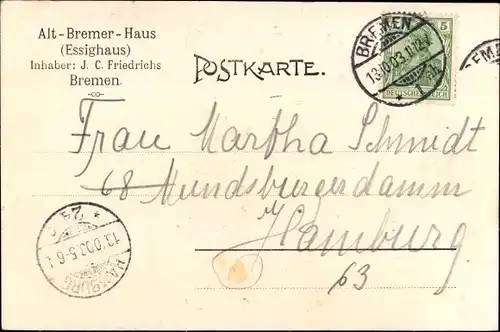 Alt-Bremer-Haus
(Essighaus)
Inhaber: J. C. Friedrichs
Bremen.
POSTKARTE.
BREMEN
13.10.03.11-12V.
5
DEUTSCHES REICH
Frau Martha Schmidt
68 Mundsburgerdamm
Hamburg
63
HAMBURG
13.10.03.5-6